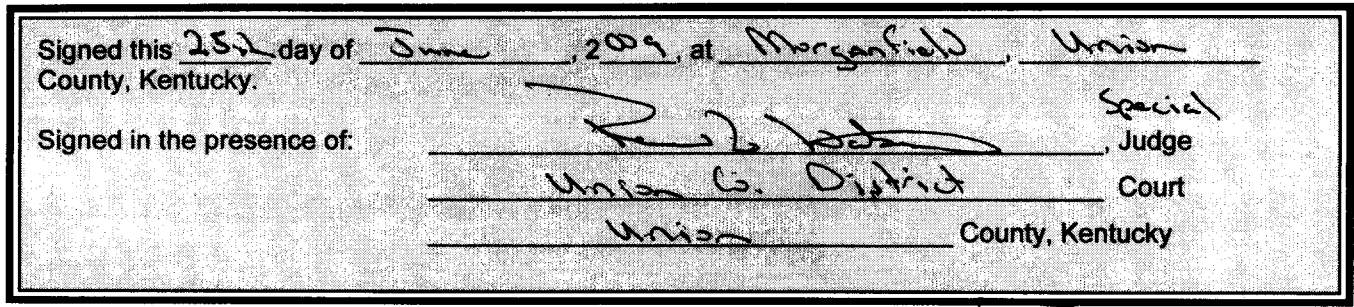 Signed this 25th day of June, 2009, at Morganfield, Union
County, Kentucky.
Special
Signed in the presence of: , Judge
Union Co. District Court
Union County, Kentucky